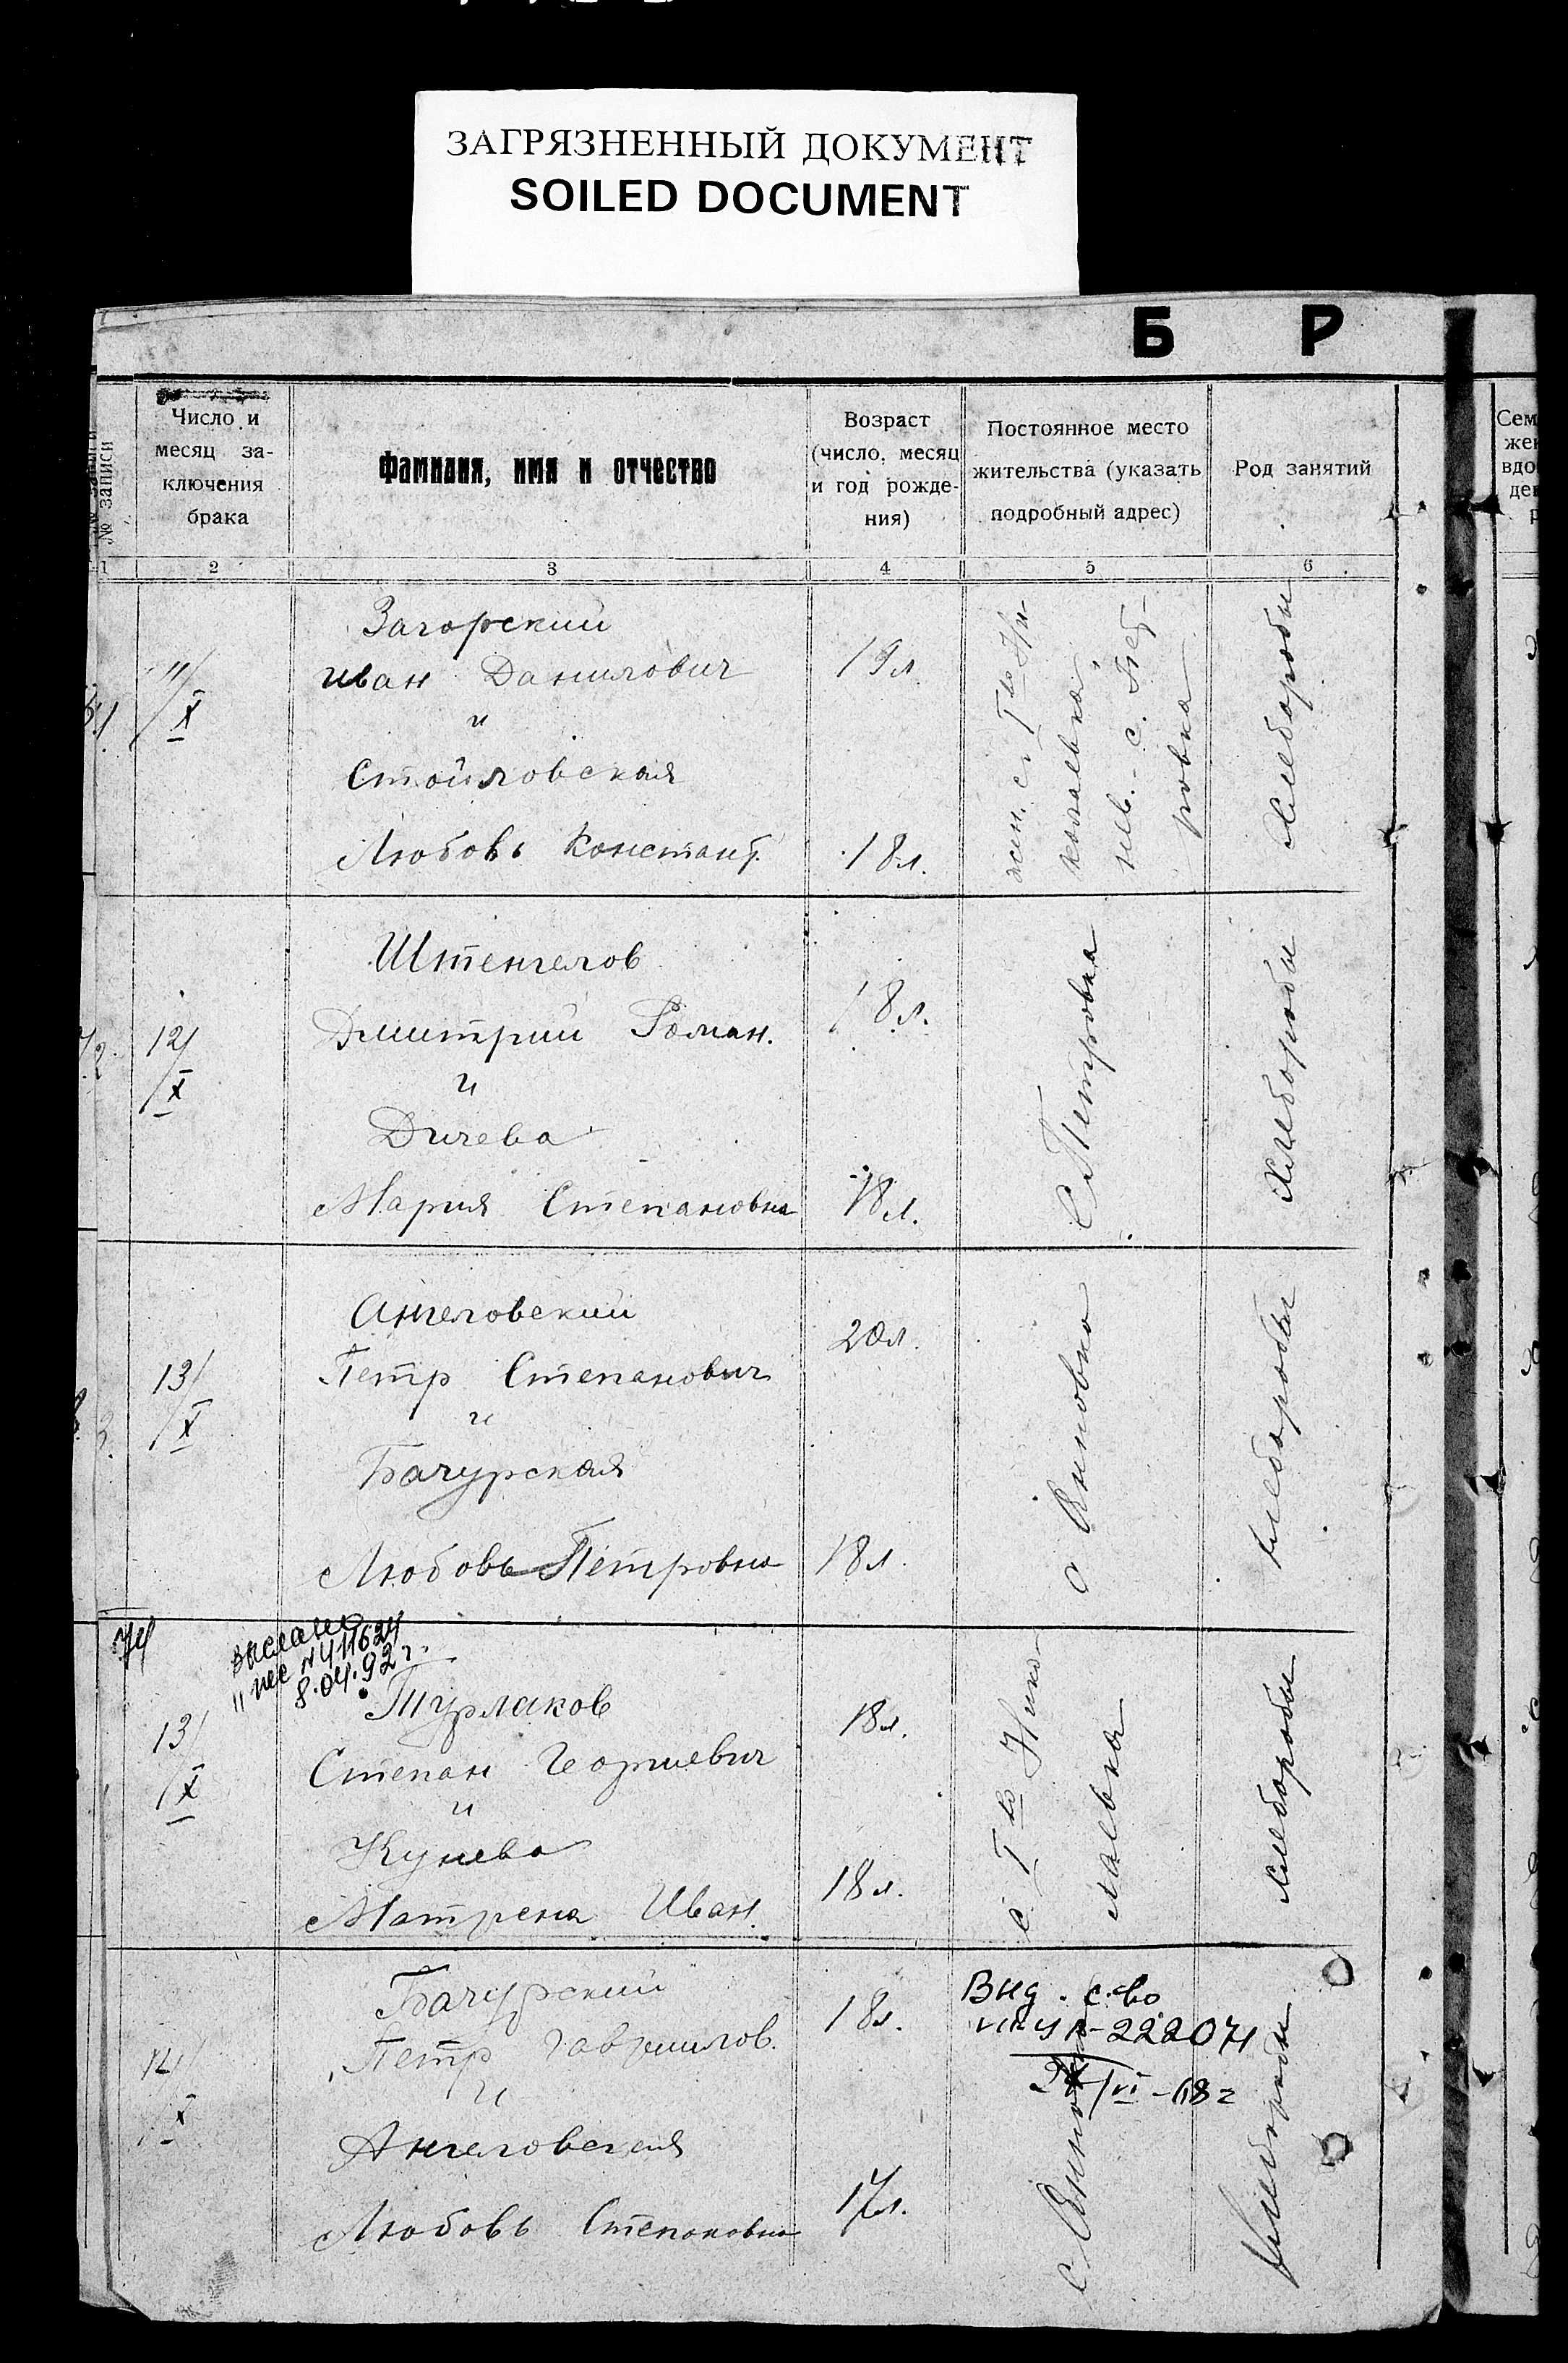 ЗАГРЯЗНЕННЫЙ ДОКУМЕНТ
SOILED DOCUMENT
Б Р
№ записи
Число и
месяц за-
ключения
брака
Фамилия, имя и отчество
Возраст
(число, месяц
и год рожде-
ния)
Постоянное место
жительства (указать
подробный адрес)
Род занятий
Сем
жен
вдо
1 2 3 4 5 6
11/X
Загорский
Иван Данилович
и
Стойловская
Любовь Констант.
19 л.
18 л.
жен. с. Тво Ни-
колаевка,
нев. - с.
ровка
Хлеборобы
12/X
Штенгелов
Дмитрий Роман.
и
Дичева
Мария Степановна
18 л.
18 л.
с. Петровка
Хлеборобы
3.
13/X
Ангеловский
Петр Степанович
и
Бачурская
Любовь Петровна
20 л.
18 л.
с. Анновка
хлеборобы
74
выслано
8.04.92 г.
13/X
Турлаков
Степан Георгиевич
и
Кунева
Матрена Иван.
18 л.
18 л.
с. Тво Нико-
лаевка
хлеборобы
14/X
Бачурский
Петр Гаврилов.
и
Ангеловская
Любовь Степановна
18 л.
17 л.
Выд. с-во
222071
/VI-68 г
с. Анновка
хлеборобы